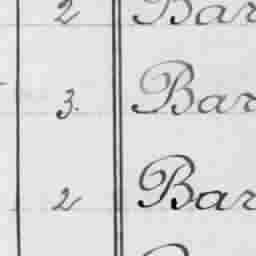 2 Bar
3. Bar
2 Bar